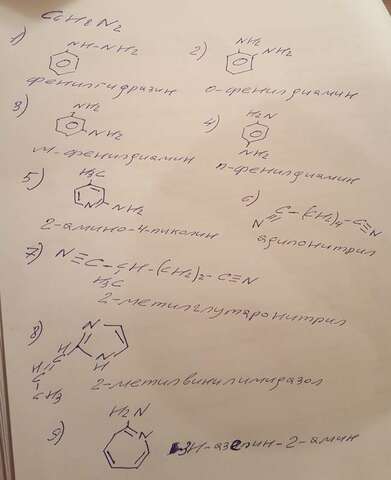 C6H8N2
1) NH-NH2
фенилгидразин
2) NH2 NH2
о-фенилдиамин
3) NH2 NH2
м-фенилдиамин
4) H2N NH2
п-фенилдиамин
5) H3C N NH2
2-амино-4-пиколин
6) N≡C-(CH2)4-C≡N
адипонитрил
7) N≡C-CH-(CH2)2-C≡N
H3C
2-метилглутаронитрил
8) N N H
H C H C CH3
2-метилвинилимидазол
9) H2N N
3H-азепин-2-амин